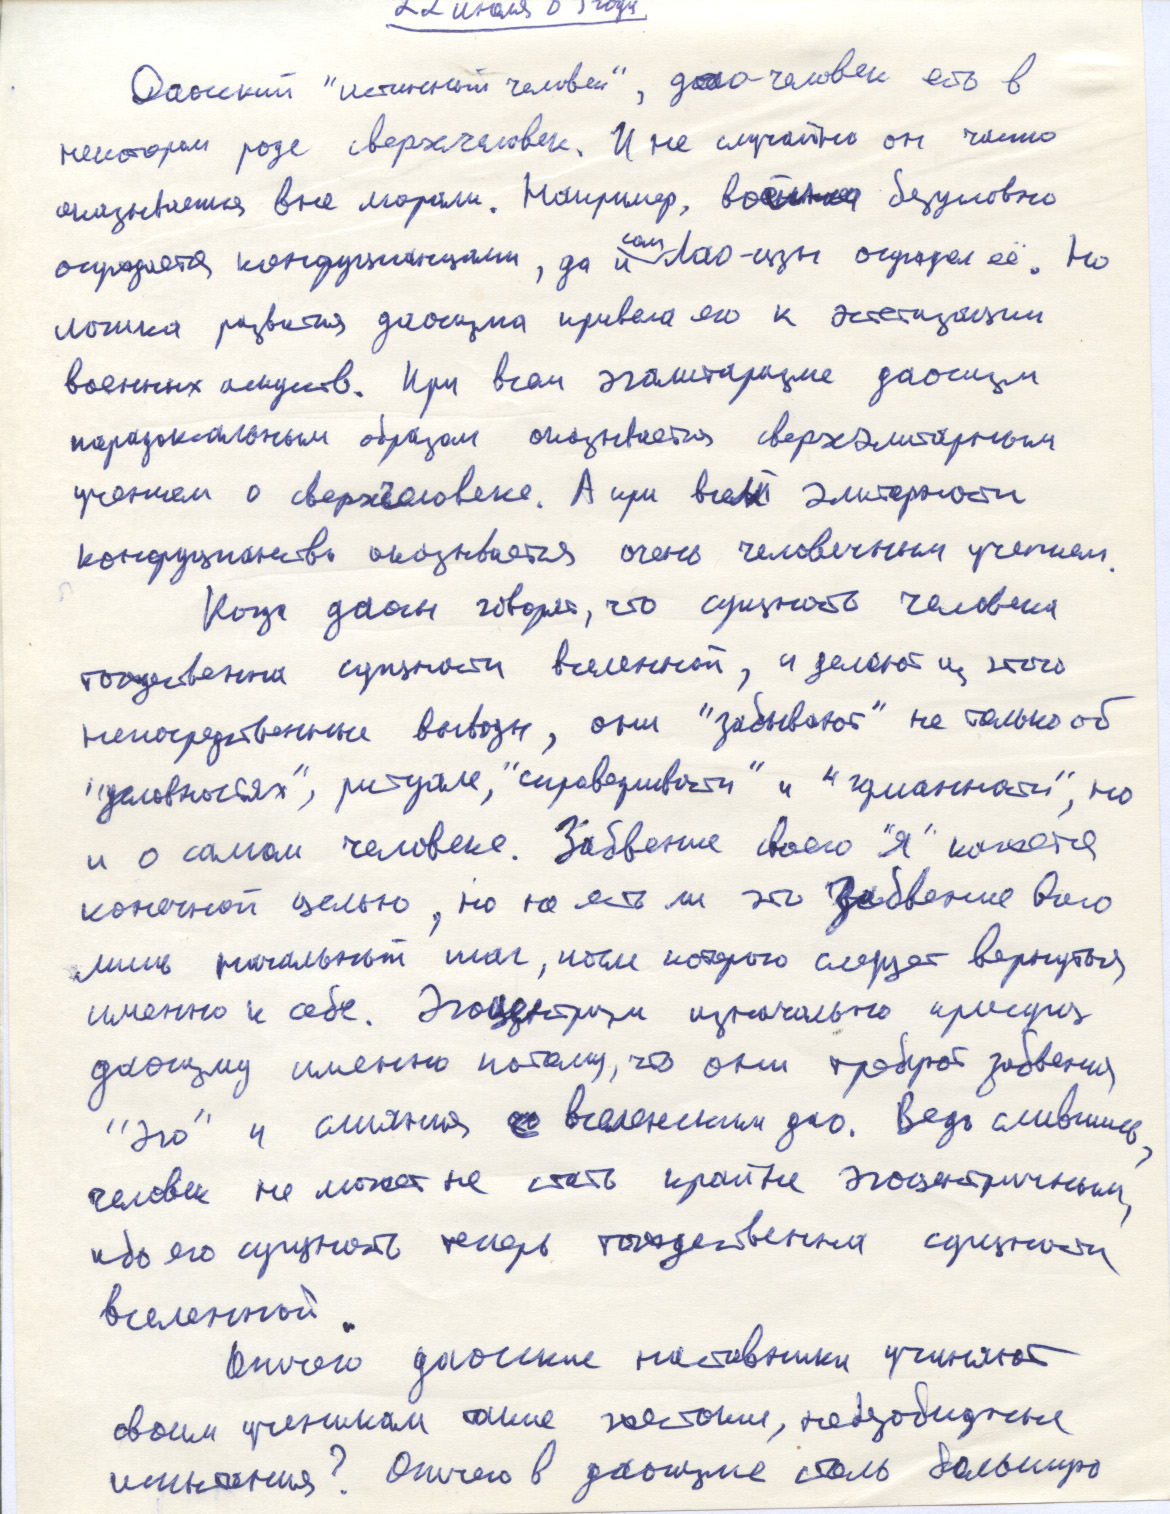 22 июля 0 года
Даосский "истинный человек", дао-человек есть в
некотором роде сверхчеловек. И не случайно он часто
оказывается вне морали. Например, война безусловно
осуждается конфуцианцами, да и сам Лао-цзы осуждал её. Но
логика развития даосизма привела его к эстетизации
военных искусств. При всем эгалитаризме даосизм
парадоксальным образом оказывается сверхэлитарным
учением о сверхчеловеке. А при всей элитарности
конфуцианство оказывается очень человечным учением.
Когда даосы говорят, что сущность человека
тождественна сущности вселенной, и делают из этого
непосредственные выводы, они "забывают" не только об
"условностях", ритуале, "справедливости" и "гуманности", но
и о самом человеке. Забвение своего "Я" кажется
конечной целью, но не есть ли это забвение всего
лишь начальный шаг, после которого следует вернуться
именно к себе. Эгоцентризм изначально присущ
даосизму именно потому, что они требуют забвения
"эго" и слияния с вселенским дао. Ведь слившись,
человек не может не стать крайне эгоцентричным,
ибо его сущность теперь тождественна сущности
вселенной.
Отчего даосские наставники учиняют
своим ученикам такие жестокие, небезобидные
испытания? Отчего в даосизме столь большую